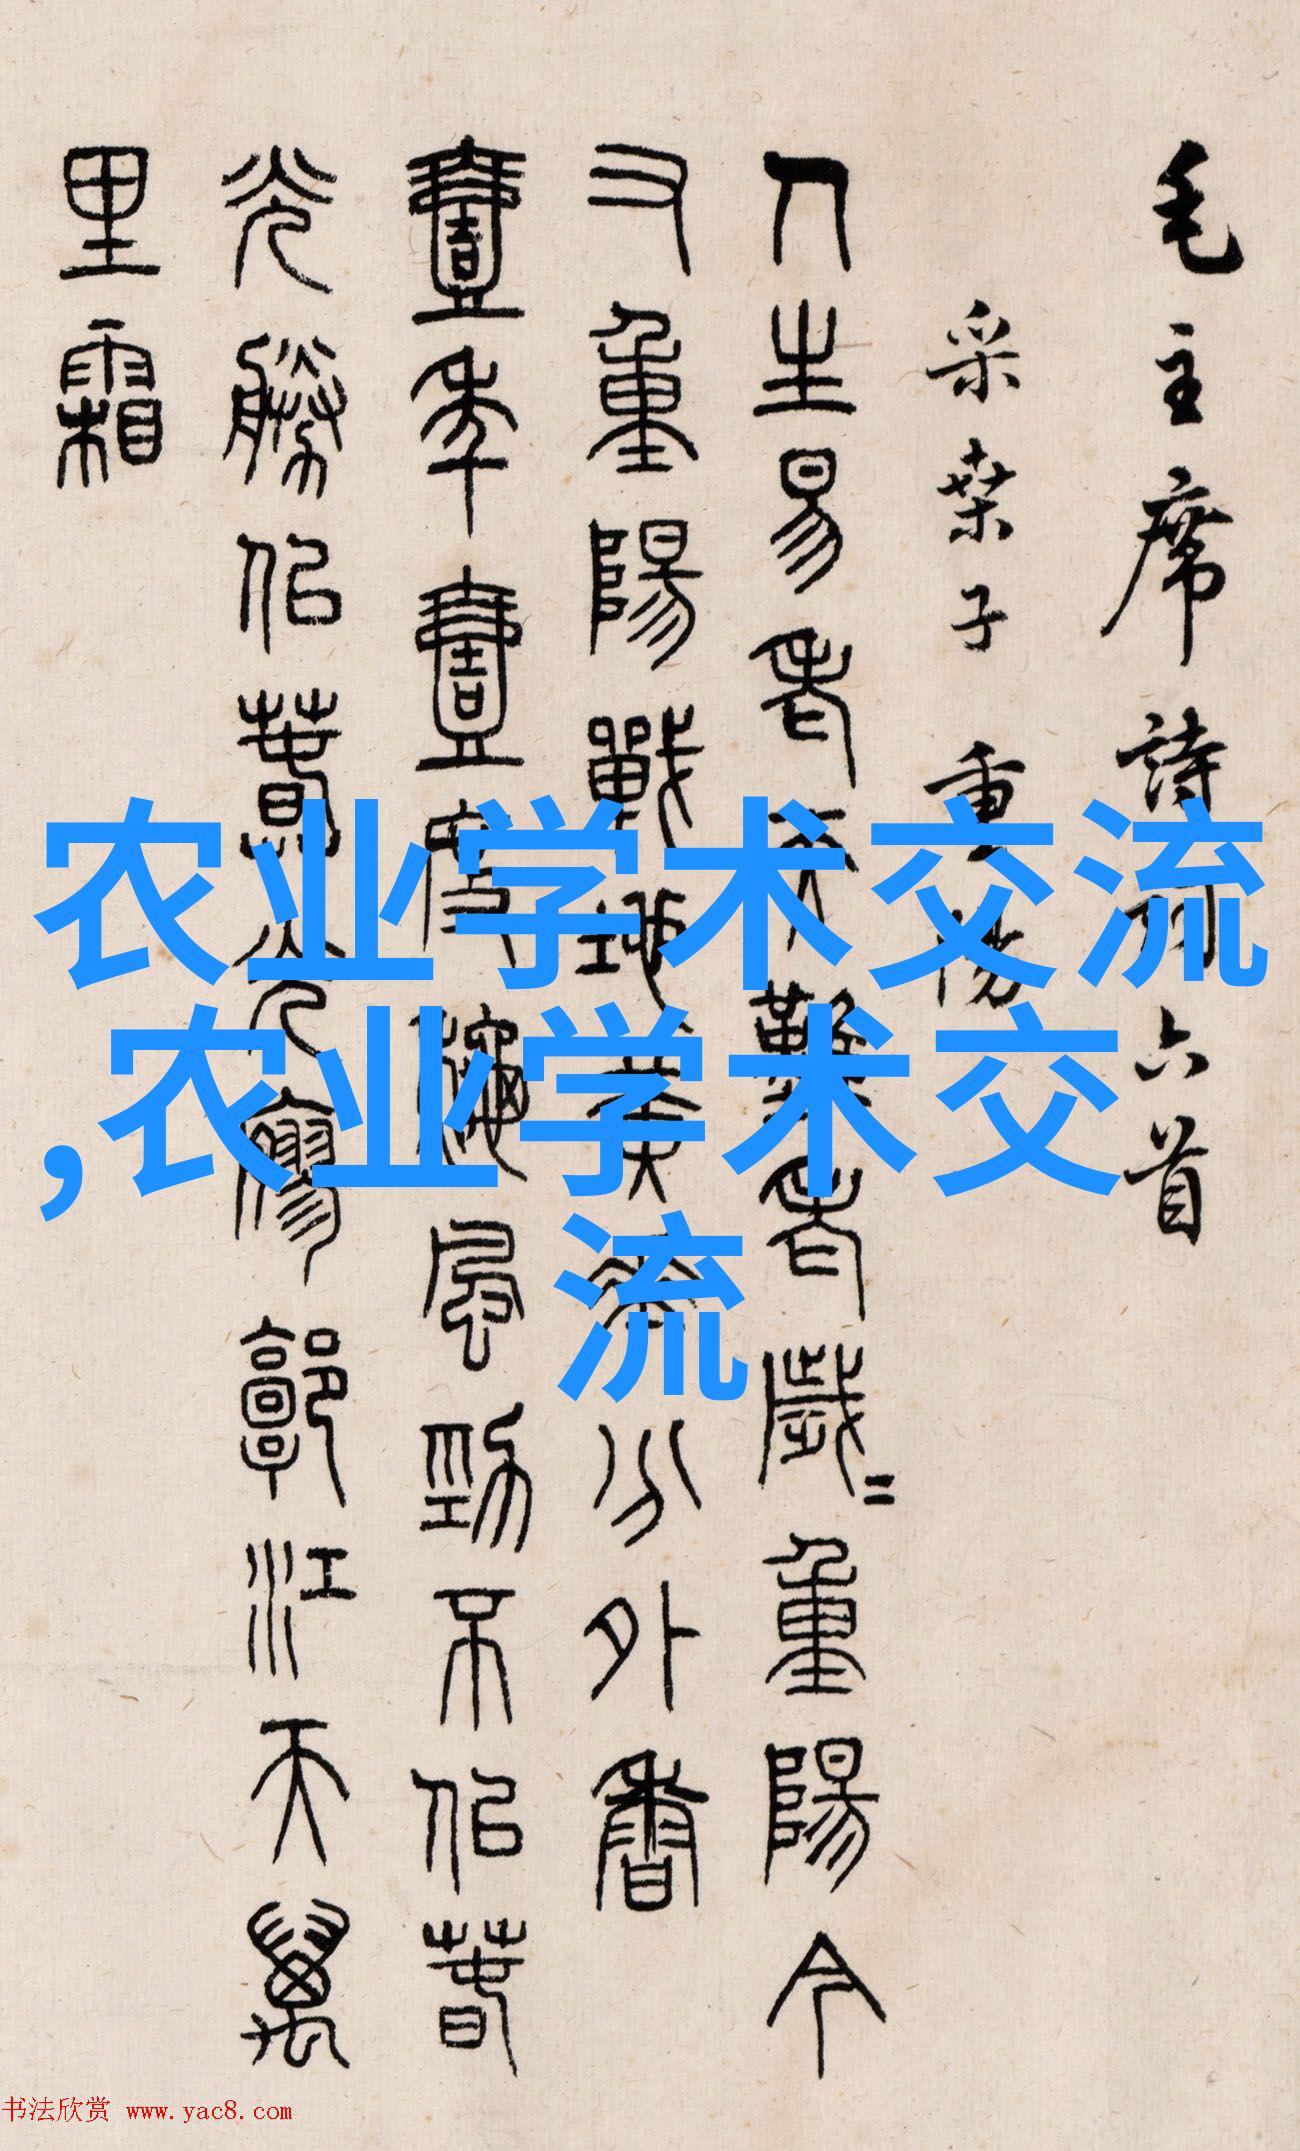 毛主席詩詞六首
采桒子 重陽
人生易老天難老歲〻重陽今
又重陽戰地黃花分外香
壹年壹度龝風勁不佀春
光勝佀春光廖郭江天萬
里霜
农业学术交流
,农业学术交
流
书法欣赏 www.yac8.com